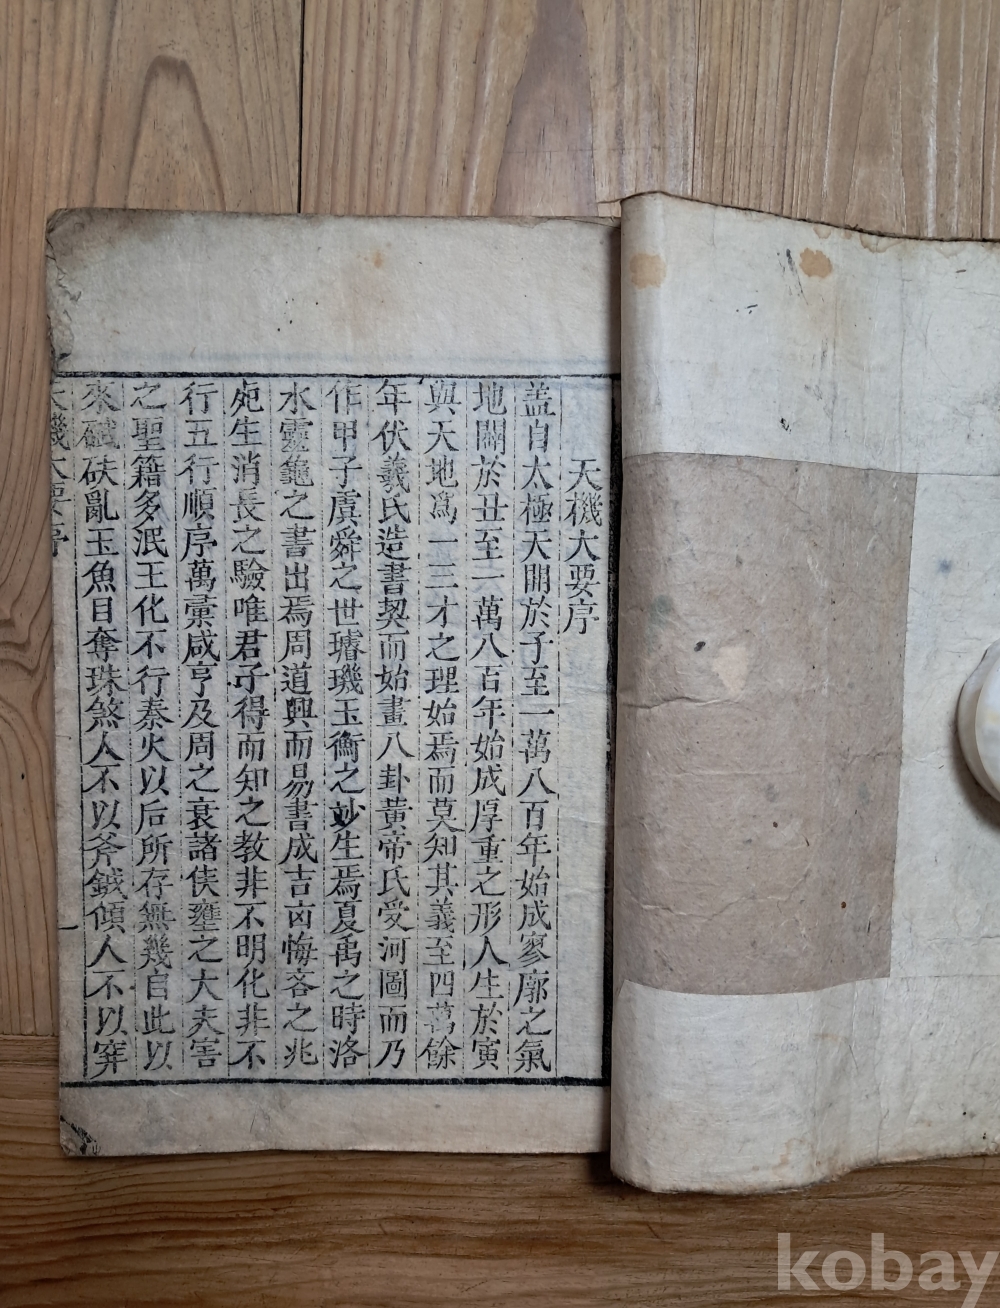 天機大要序
盖自太極天開於子至一萬八百年始成寥廓之氣
地闢於丑至二萬八百年始成厚重之形人生於寅
與天地爲一三才之理始焉而莫知其義至四萬餘
年伏羲氏造書契而始畫八卦黃帝氏受河圖而乃
作甲子虞舜之世璿璣玉衡之妙生焉夏禹之時洛
水靈龜之書出焉周道興而易書成吉凶悔吝之兆
死生消長之驗唯君子得而知之教非不明化非不
行五行順序萬彙咸亨及周之衰諸侯壅之大夫害
之聖籍多泯王化不行秦火以后所存無幾自此以
來碔砆亂玉魚目奪珠煞人不以斧鉞傾人不以穽
天機大要序
一
kobay